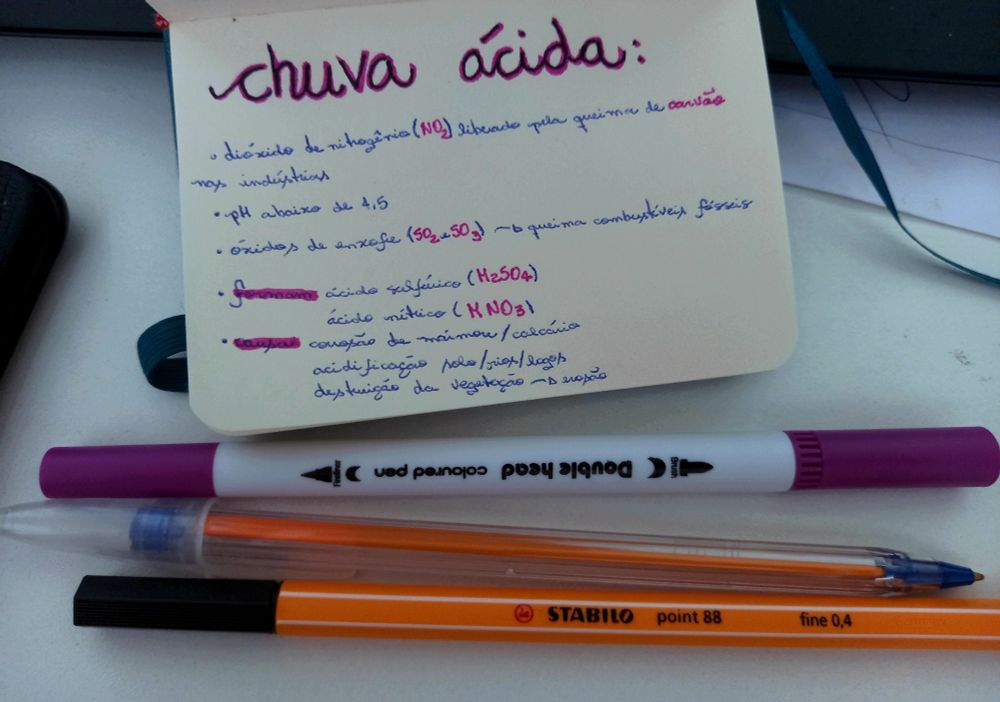 chuva ácida:
• dióxido de nitrogênio (NO2) liberado pela queima de carvão
nas indústrias
• pH abaixo de 4,5
• óxidos de enxofre (SO2 e SO3) → queima combustíveis fósseis
• formam ácido sulfúrico (H2SO4)
ácido nítrico (HNO3)
• causa corrosão de mármore/calcário
acidificação solo/rios/lagos
destruição da vegetação → erosão
Fineliner coloured pen Double head Brush
STABILO point 88 fine 0,4